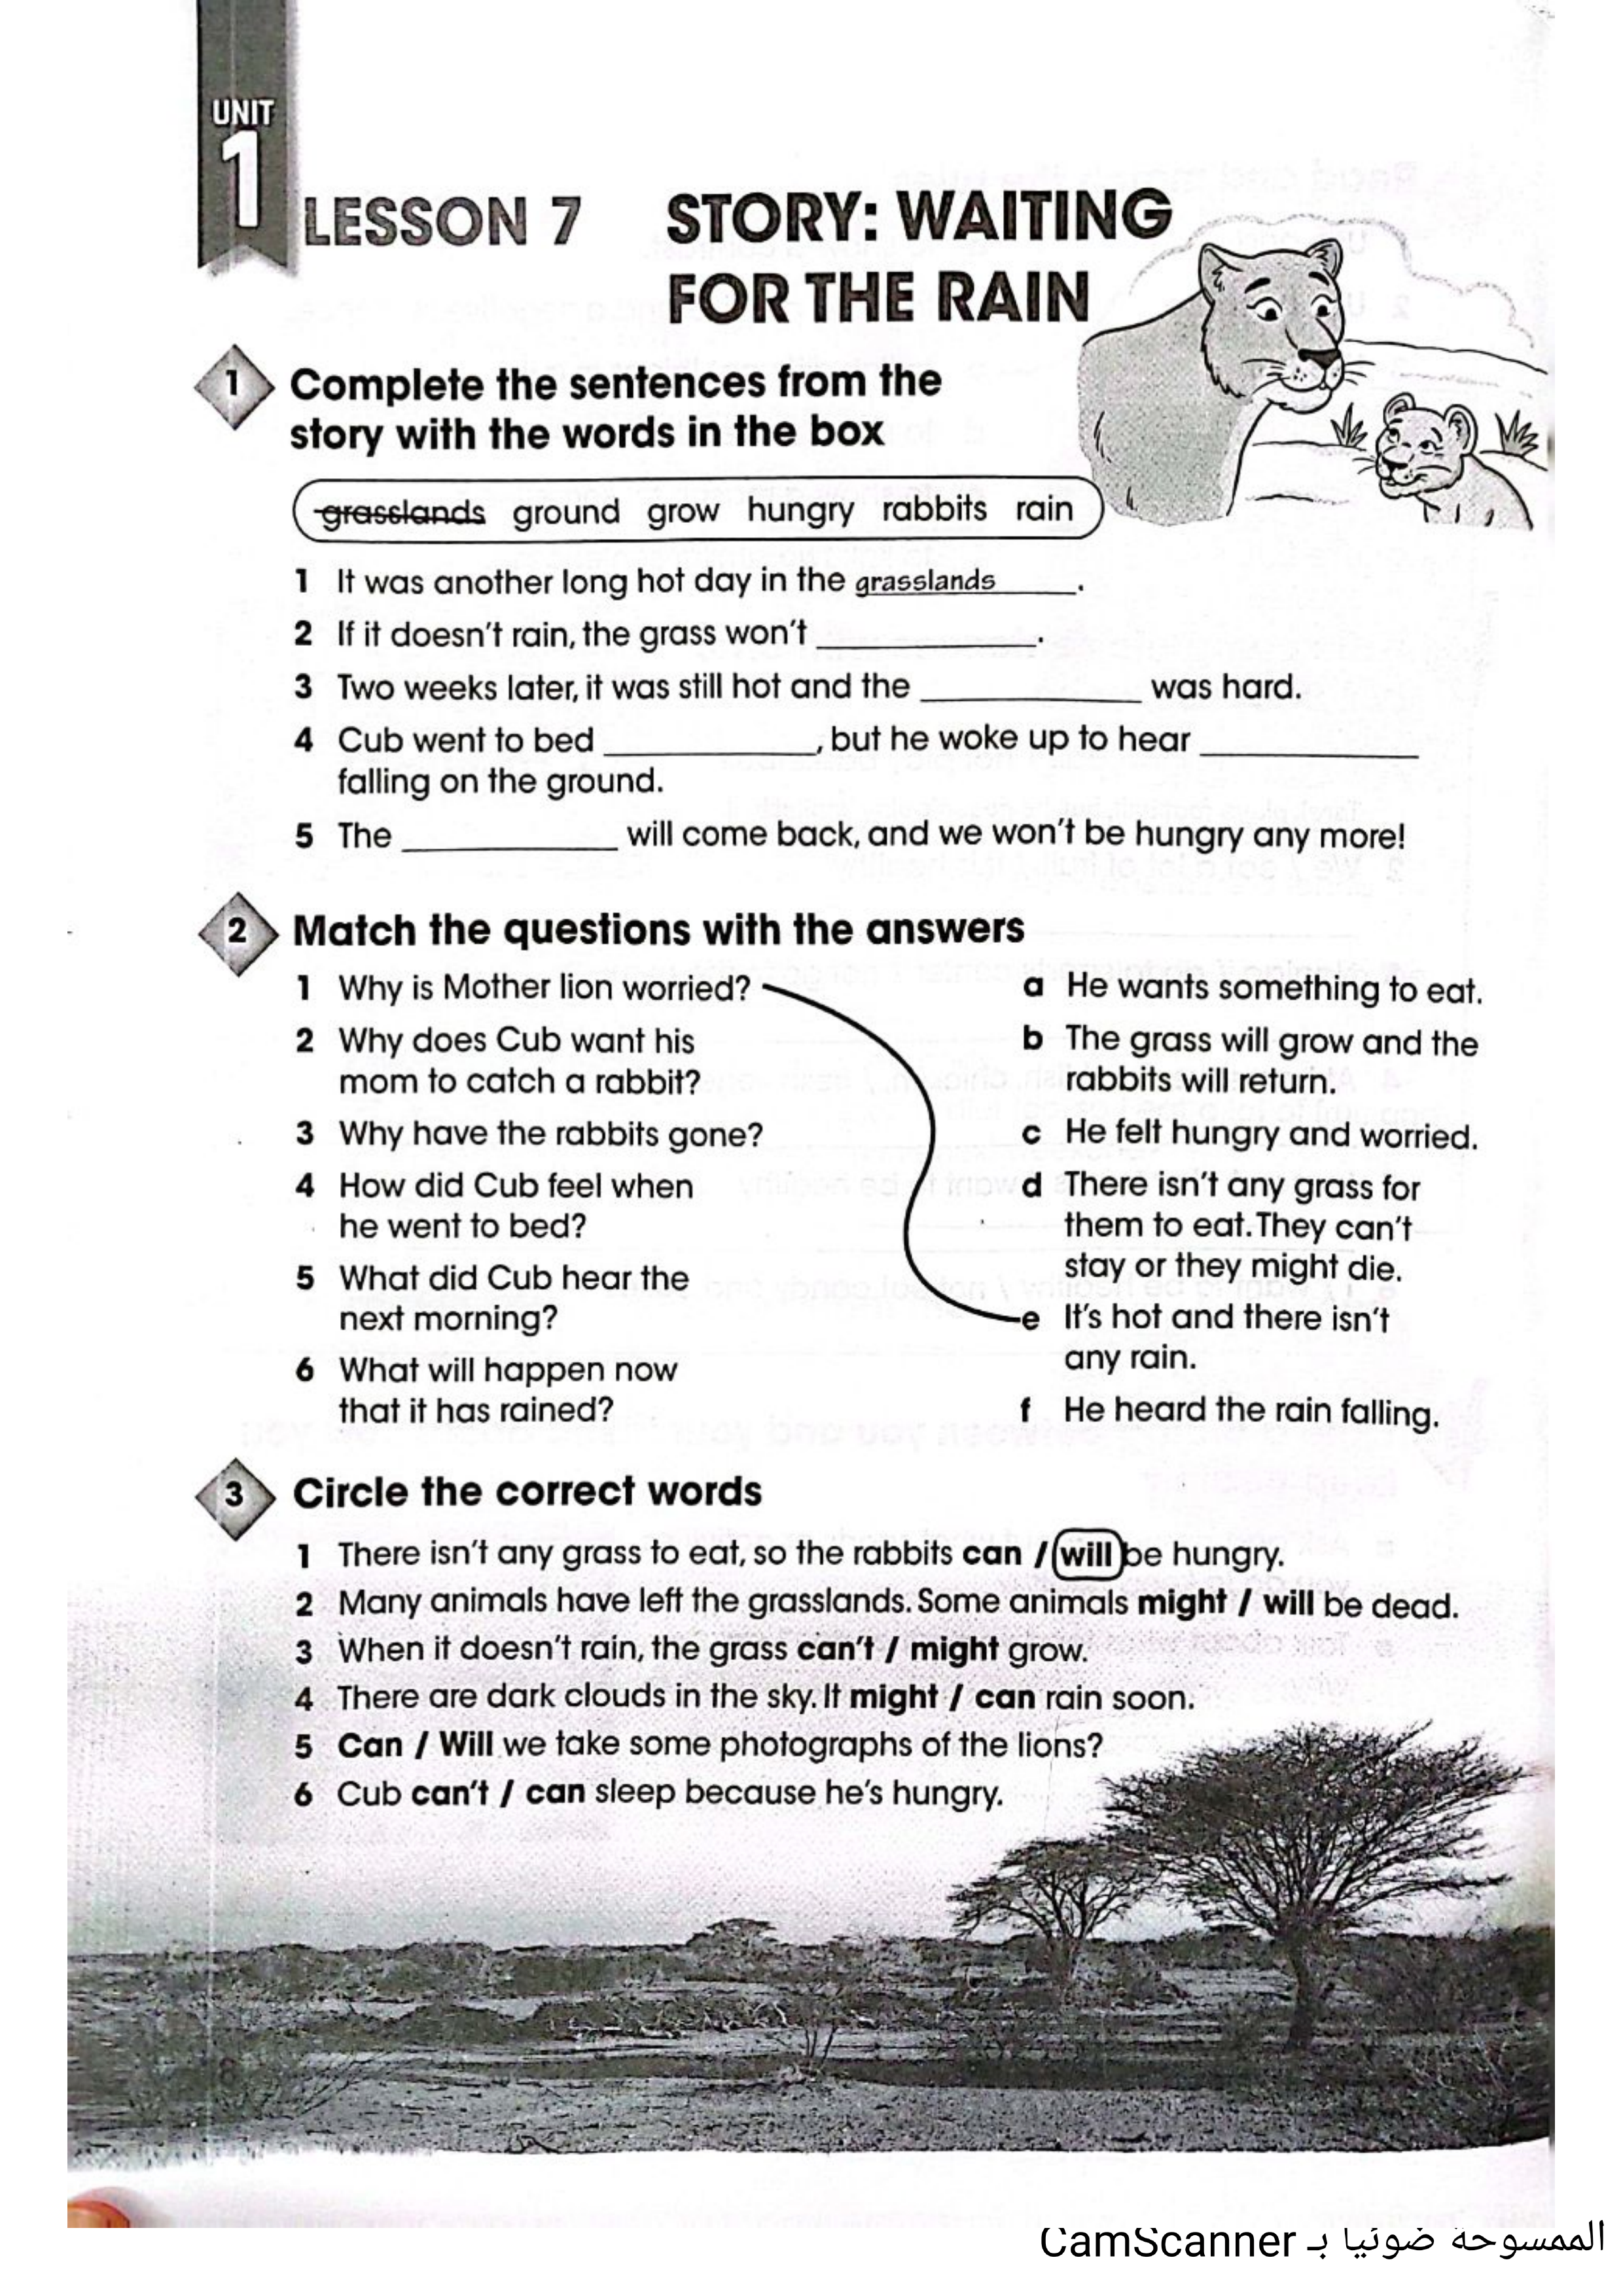 UNIT
1
LESSON 7
STORY: WAITING
FOR THE RAIN
1 Complete the sentences from the
story with the words in the box
grasslands ground grow hungry rabbits rain
1 It was another long hot day in the grasslands______.
2 If it doesn't rain, the grass won't ____________.
3 Two weeks later, it was still hot and the ____________ was hard.
4 Cub went to bed ____________, but he woke up to hear ____________
falling on the ground.
5 The ____________ will come back, and we won't be hungry any more!
2 Match the questions with the answers
1 Why is Mother lion worried?
2 Why does Cub want his
mom to catch a rabbit?
3 Why have the rabbits gone?
4 How did Cub feel when
he went to bed?
5 What did Cub hear the
next morning?
6 What will happen now
that it has rained?
a He wants something to eat.
b The grass will grow and the
rabbits will return.
c He felt hungry and worried.
d There isn't any grass for
them to eat. They can't
stay or they might die.
e It's hot and there isn't
any rain.
f He heard the rain falling.
3 Circle the correct words
1 There isn't any grass to eat, so the rabbits can / will be hungry.
2 Many animals have left the grasslands. Some animals might / will be dead.
3 When it doesn't rain, the grass can't / might grow.
4 There are dark clouds in the sky. It might / can rain soon.
5 Can / Will we take some photographs of the lions?
6 Cub can't / can sleep because he's hungry.
الممسوحة ضوئيا بـ CamScanner